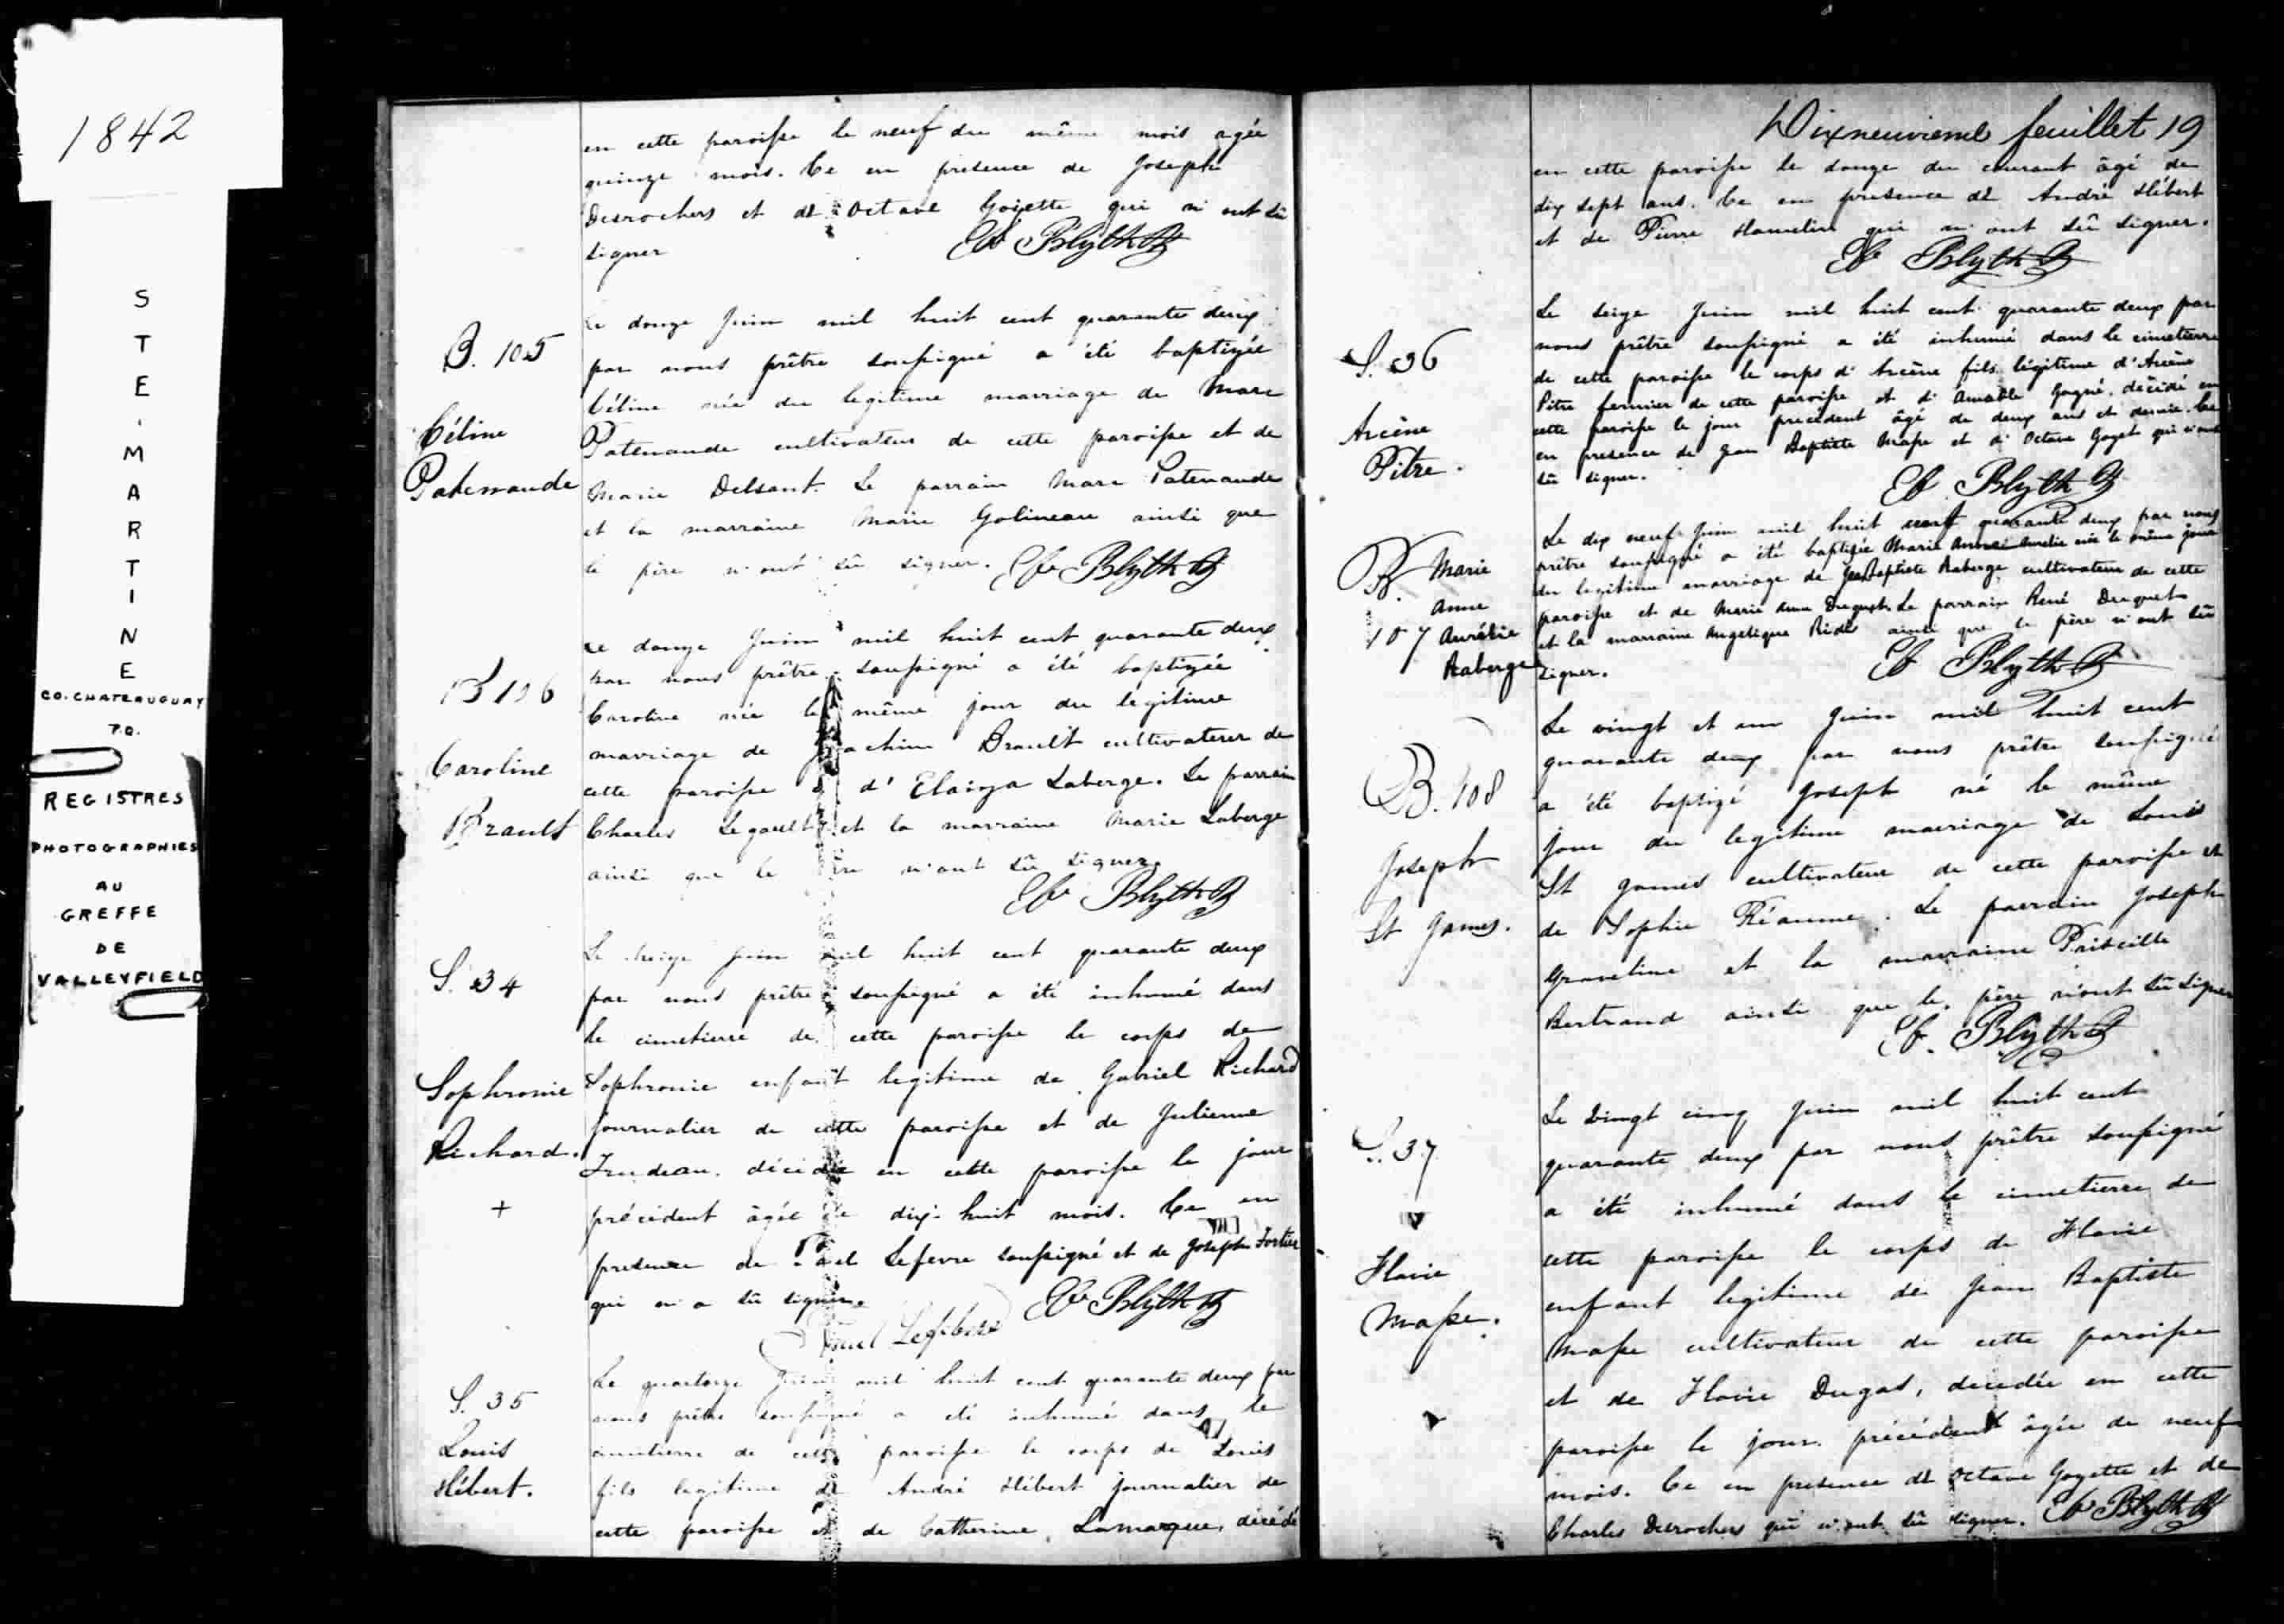 1842
STE. MARTINE
CO. CHATEAUGUAY
P.Q.
REGISTRES
PHOTOGRAPHIES
AU
GREFFE
DE
VALLEYFIELD
en cette paroisse le neuf du même mois agée
quinze mois. Ce en présence de Joseph
Desrochers et de Octave Goyette qui n'ont sû
signer Eb Blyth Ptr
B. 105
Céline
Patenaude
Le douze Juin mil huit cent quarante deux
par nous prêtre soussigné a été baptizée
Céline née du legitime marriage de Marc
Patenaude cultivateur de cette paroisse et de
Marie Delsaut. Le parrain Marc Patenaude
et la marraine Marie Golineau ainsi que
le père n'ont sû signer. Eb Blyth Ptr
B 106
Caroline
Brault
Le douze Juin mil huit cent quarante deux
par nous prêtre soussigné a été baptizée
Caroline née le même jour du legitime
marriage de Joachim Brault cultivateur de
cette paroisse d'Elaiza Laberge. Le parrain
Charles Legault et la marraine Marie Laberge
ainsi que le père n'ont sû signer.
Eb Blyth Ptr
S. 34
Sophronie
Richard.
+
Le treize Juin mil huit cent quarante deux
par nous prêtre soussigné a été inhumé dans
le cimetierre de cette paroisse le corps de
Sophronie enfant legitime de Gabriel Richard
journalier de cette paroisse et de Julienne
Trudeau. décédée en cette paroisse le jour
précédent âgée de dix-huit mois. Ce en
presence de Paul Lefevre soussigné et de Joseph Fortier
qui n'a sû signer. Eb Blyth Ptr
Paul Lefebvre
S. 35
Louis
Hébert.
Le quartorze Juin mil huit cent quarante deux par
nous prêtre soussigné a été inhumé dans le
cimetierre de cette paroisse le corps de Louis
fils legitime de André Hébert journalier de
cette paroisse et de Catherine Lamarque, décédé
Dixneuvieme feuillet 19
en cette paroisse le douze du courant âgé de
dix sept ans. Ce en presence de André Hébert
et de Pierre Hamelin qui n'ont sû signer.
Eb Blyth Ptr
S. 36
Arcène
Pitre.
Le seize Juin mil huit cent quarante deux par
nous prêtre soussigné a été inhumé dans le cimetierre
de cette paroisse le corps d'Arcène fils légitime d'Arcène
Pitre fermier de cette paroisse et d'Amable Gagné. décédé en
cette paroisse le jour precédent âgé de deux ans et demie. Ce
en presence de Jean Baptiste Masse et d'Octave Goyet qui n'ont
sû signer. Eb Blyth Ptr
B. 107
Marie
Anne
Aurélie
Raberge
Le dix neuf Juin mil huit cent quarante deux par nous
prêtre soussigné a été baptizée Marie Anne Aurelie née le même jour
du legitime marriage de Jean Baptiste Raberge, cultivateur de cette
paroisse et de Marie Anne Duquet. Le parrain René Duquet
et la marraine Angelique Ride ainsi que le père n'ont sû
signer. Eb Blyth Ptr
B. 108
Joseph
St James.
Le vingt et un Juin mil huit cent
quarante deux par nous prêtre soussigné
a été baptizé Joseph né le même
jour du legitime marriage de Louis
St James cultivateur de cette paroisse et
de Sophie Réaume. Le parrain Joseph
Graveline et la marraine Priscille
Bertrand ainsi que le père n'ont sû signer
Eb. Blyth Ptr
S. 37
Flavie
Masse.
Le vingt cinq Juin mil huit cent
quarante deux par nous prêtre soussigné
a été inhumé dans le cimetierre de
cette paroisse le corps de Flavie
enfant legitime de Jean Baptiste
Masse cultivateur de cette paroisse
et de Flavie Dugas, decedée en cette
paroisse le jour précédent âgée de neuf
mois. Ce en presence de Octave Goyette et de
Charles Desrochers qui n'ont sû signer. Eb Blyth Ptr